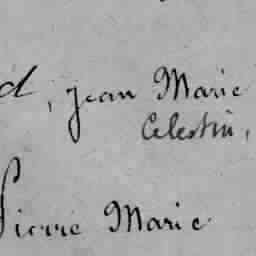 d, Jean Marie
Celestin,
Pierre Marie